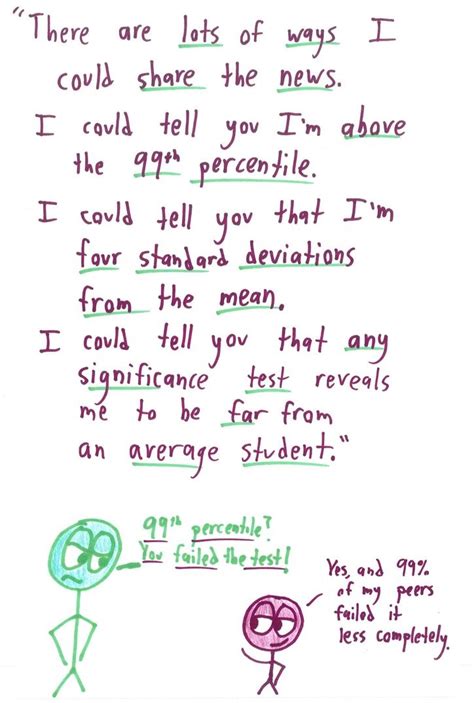 "There are lots of ways I
could share the news.
I could tell you I'm above
the 99th percentile.
I could tell you that I'm
four standard deviations
from the mean.
I could tell you that any
significance test reveals
me to be far from
an average student."
99th percentile?
You failed the test!
Yes, and 99%
of my peers
failed it
less completely.